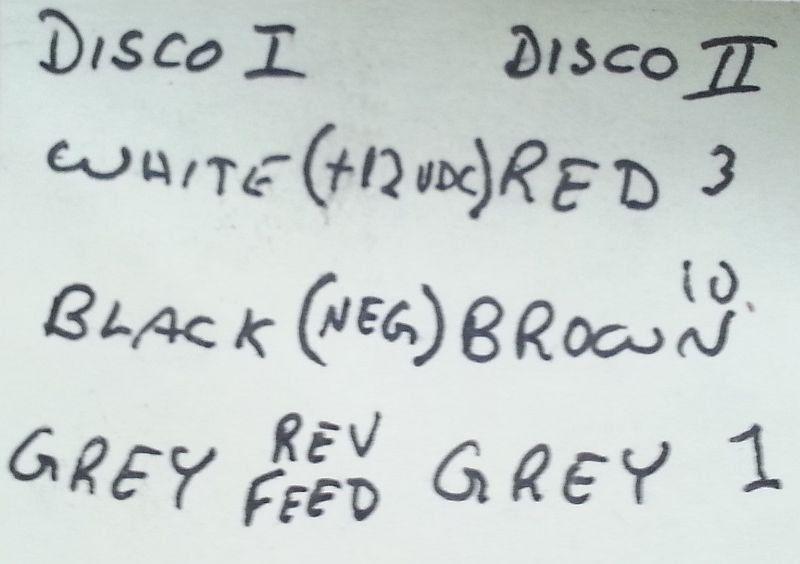 DISCO I DISCO II
WHITE (+12 VDC) RED 3
BLACK (NEG) BROWN 10
GREY REV FEED GREY 1